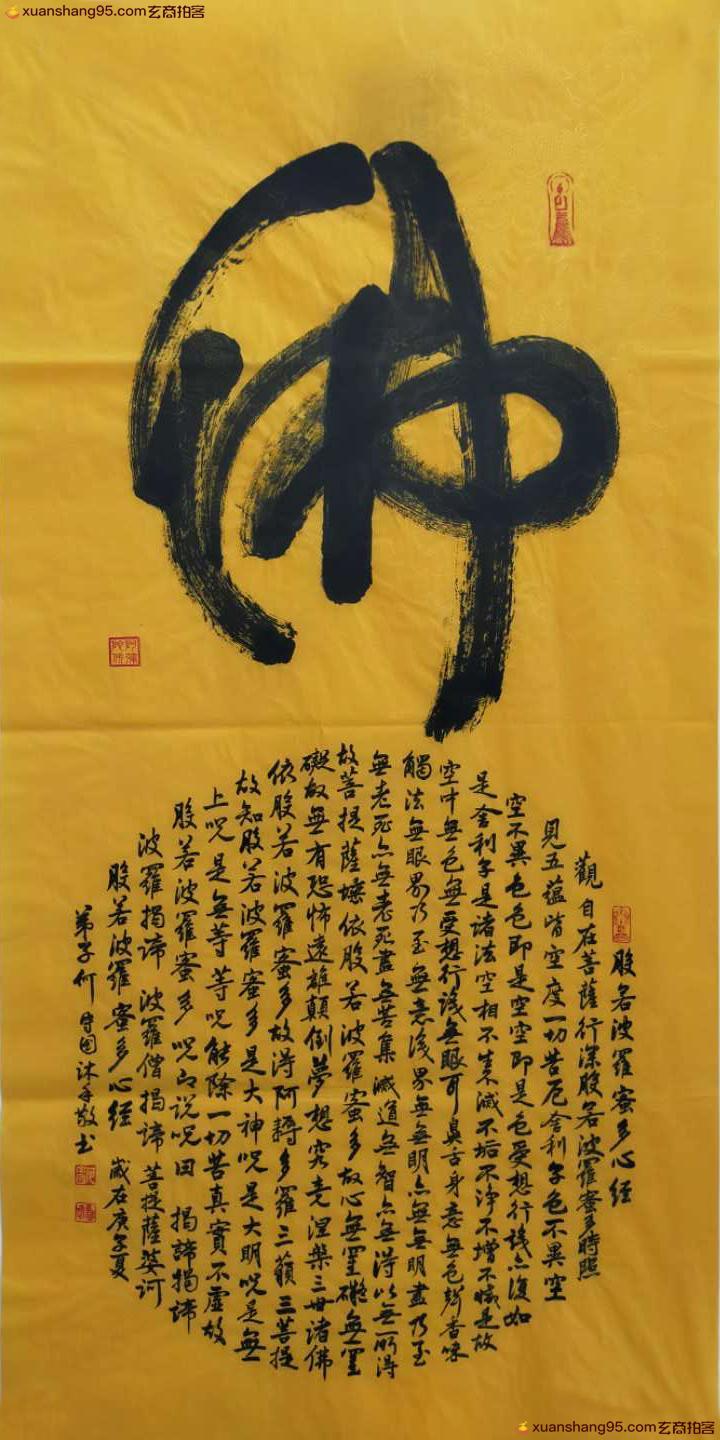 xuanshang95.com玄商拍客
佛
般若波羅蜜多心經
觀自在菩薩行深般若波羅蜜多時照
見五蘊皆空度一切苦厄舍利子色不異空
空不異色色即是空空即是色受想行識亦復如
是舍利子是諸法空相不生不滅不垢不淨不增不減是故
空中無色無受想行識無眼耳鼻舌身意無色聲香味
觸法無眼界乃至無意識界無無明亦無無明盡乃至
無老死亦無老死盡無苦集滅道無智亦無得以無所得
故菩提薩埵依般若波羅蜜多故心無罣礙無罣
礙故無有恐怖遠離顛倒夢想究竟涅槃三世諸佛
依般若波羅蜜多故得阿耨多羅三藐三菩提
故知般若波羅蜜多是大神咒是大明咒是無
上咒是無等等咒能除一切苦真實不虛故
般若波羅蜜多咒即說咒曰 揭諦揭諦
波羅揭諦 波羅僧揭諦 菩提薩婆訶
般若波羅蜜多心經 歲在庚子夏
弟子何 沐手敬书
xuanshang95.com玄商拍客